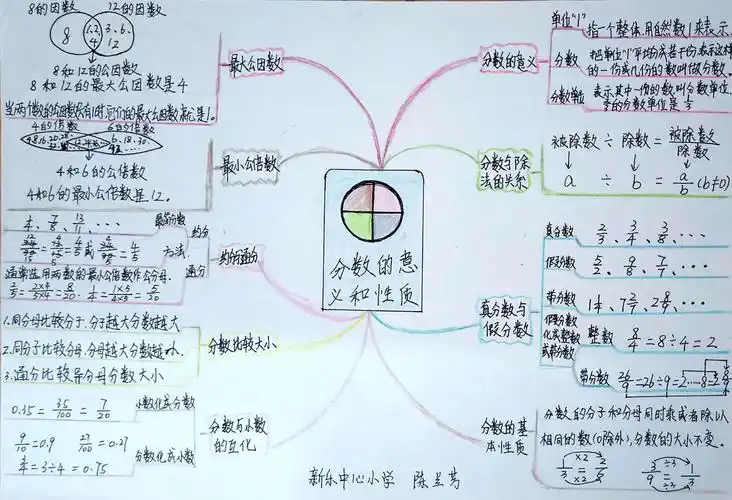 分数的意
义和性质
最大公因数
8的因数 12的因数
8 1.2. 4 3.6. 12
8和12的公因数
8和12的最大公因数是4
当两个数的公因数只有1时,它们的最大公因数就是1。
最小公倍数
4的倍数 6的倍数
4和6的公倍数
4和6的最小公倍数是12。
约分通分
最简分数
1/4、7/8、13/11、…
约分
方法
通分
通常选用两数的最小公倍数作公分母.
2/5=2×4/5×4=8/20 1/4=1×5/4×5=5/20
分数比较大小
1.同分母比较分子,分子越大分数越大
2.同分子比较分母,分母越大分数越小.
3.通分比较异分母分数大小
分数与小数
的互化
小数化成分数
0.35=35/100=7/20
9/10=0.9 27/100=0.27
分数化成小数
3/4=3÷4=0.75
分数的意义
单位“1”
指一个整体,用自然数1来表示.
分数
把单位“1”平均分成若干份,表示这样
的一份或几份的数叫做分数。
分数单位
表示其中一份的数叫分数单位.
的分数单位是1/3
分数与除
法的关系
被除数 ÷ 除数 = 被除数/除数
a ÷ b = a/b (b≠0)
真分数与
假分数
真分数 2/3、3/4、3/8、…
假分数 5/2、9/8、7/7、…
带分数
假分数
化成整数
或带分数
整数 8/4=8÷4=2
带分数 26/9=26÷9=2……8=2 8/9
分数的基
本性质
分数的分子和分母同时乘或者除以
相同的数(0除外),分数的大小不变。
×2 ÷3
1/3=2/6 3/9=1/3
×2 ÷3
新乐中心小学 陈兰芳